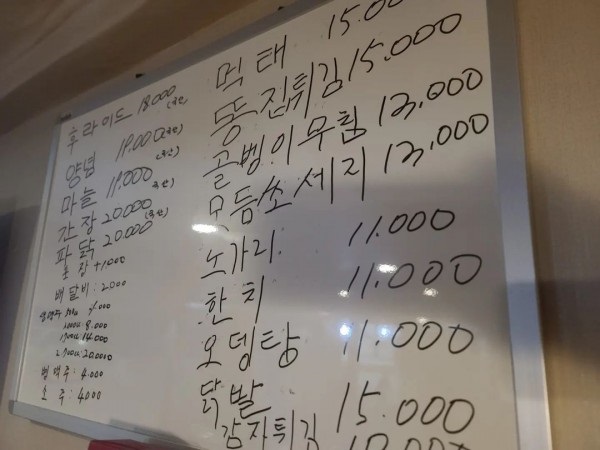 후라이드 18.000
양념 19.000
마늘 19.000
간장 20.000
파닭 20.000
포장 +1.000
배달비 : 2000
1000cc 8.000
14.000
20.000
병맥주 : 4.000
소주 : 4000
먹태 15.00
똥집튀김 15.000
골벵이무침 13,000
모듬쏘세지 13,000
노가리. 11.000
한치 11.000
오뎅탕 11.000
닭발 15.000
감자튀김